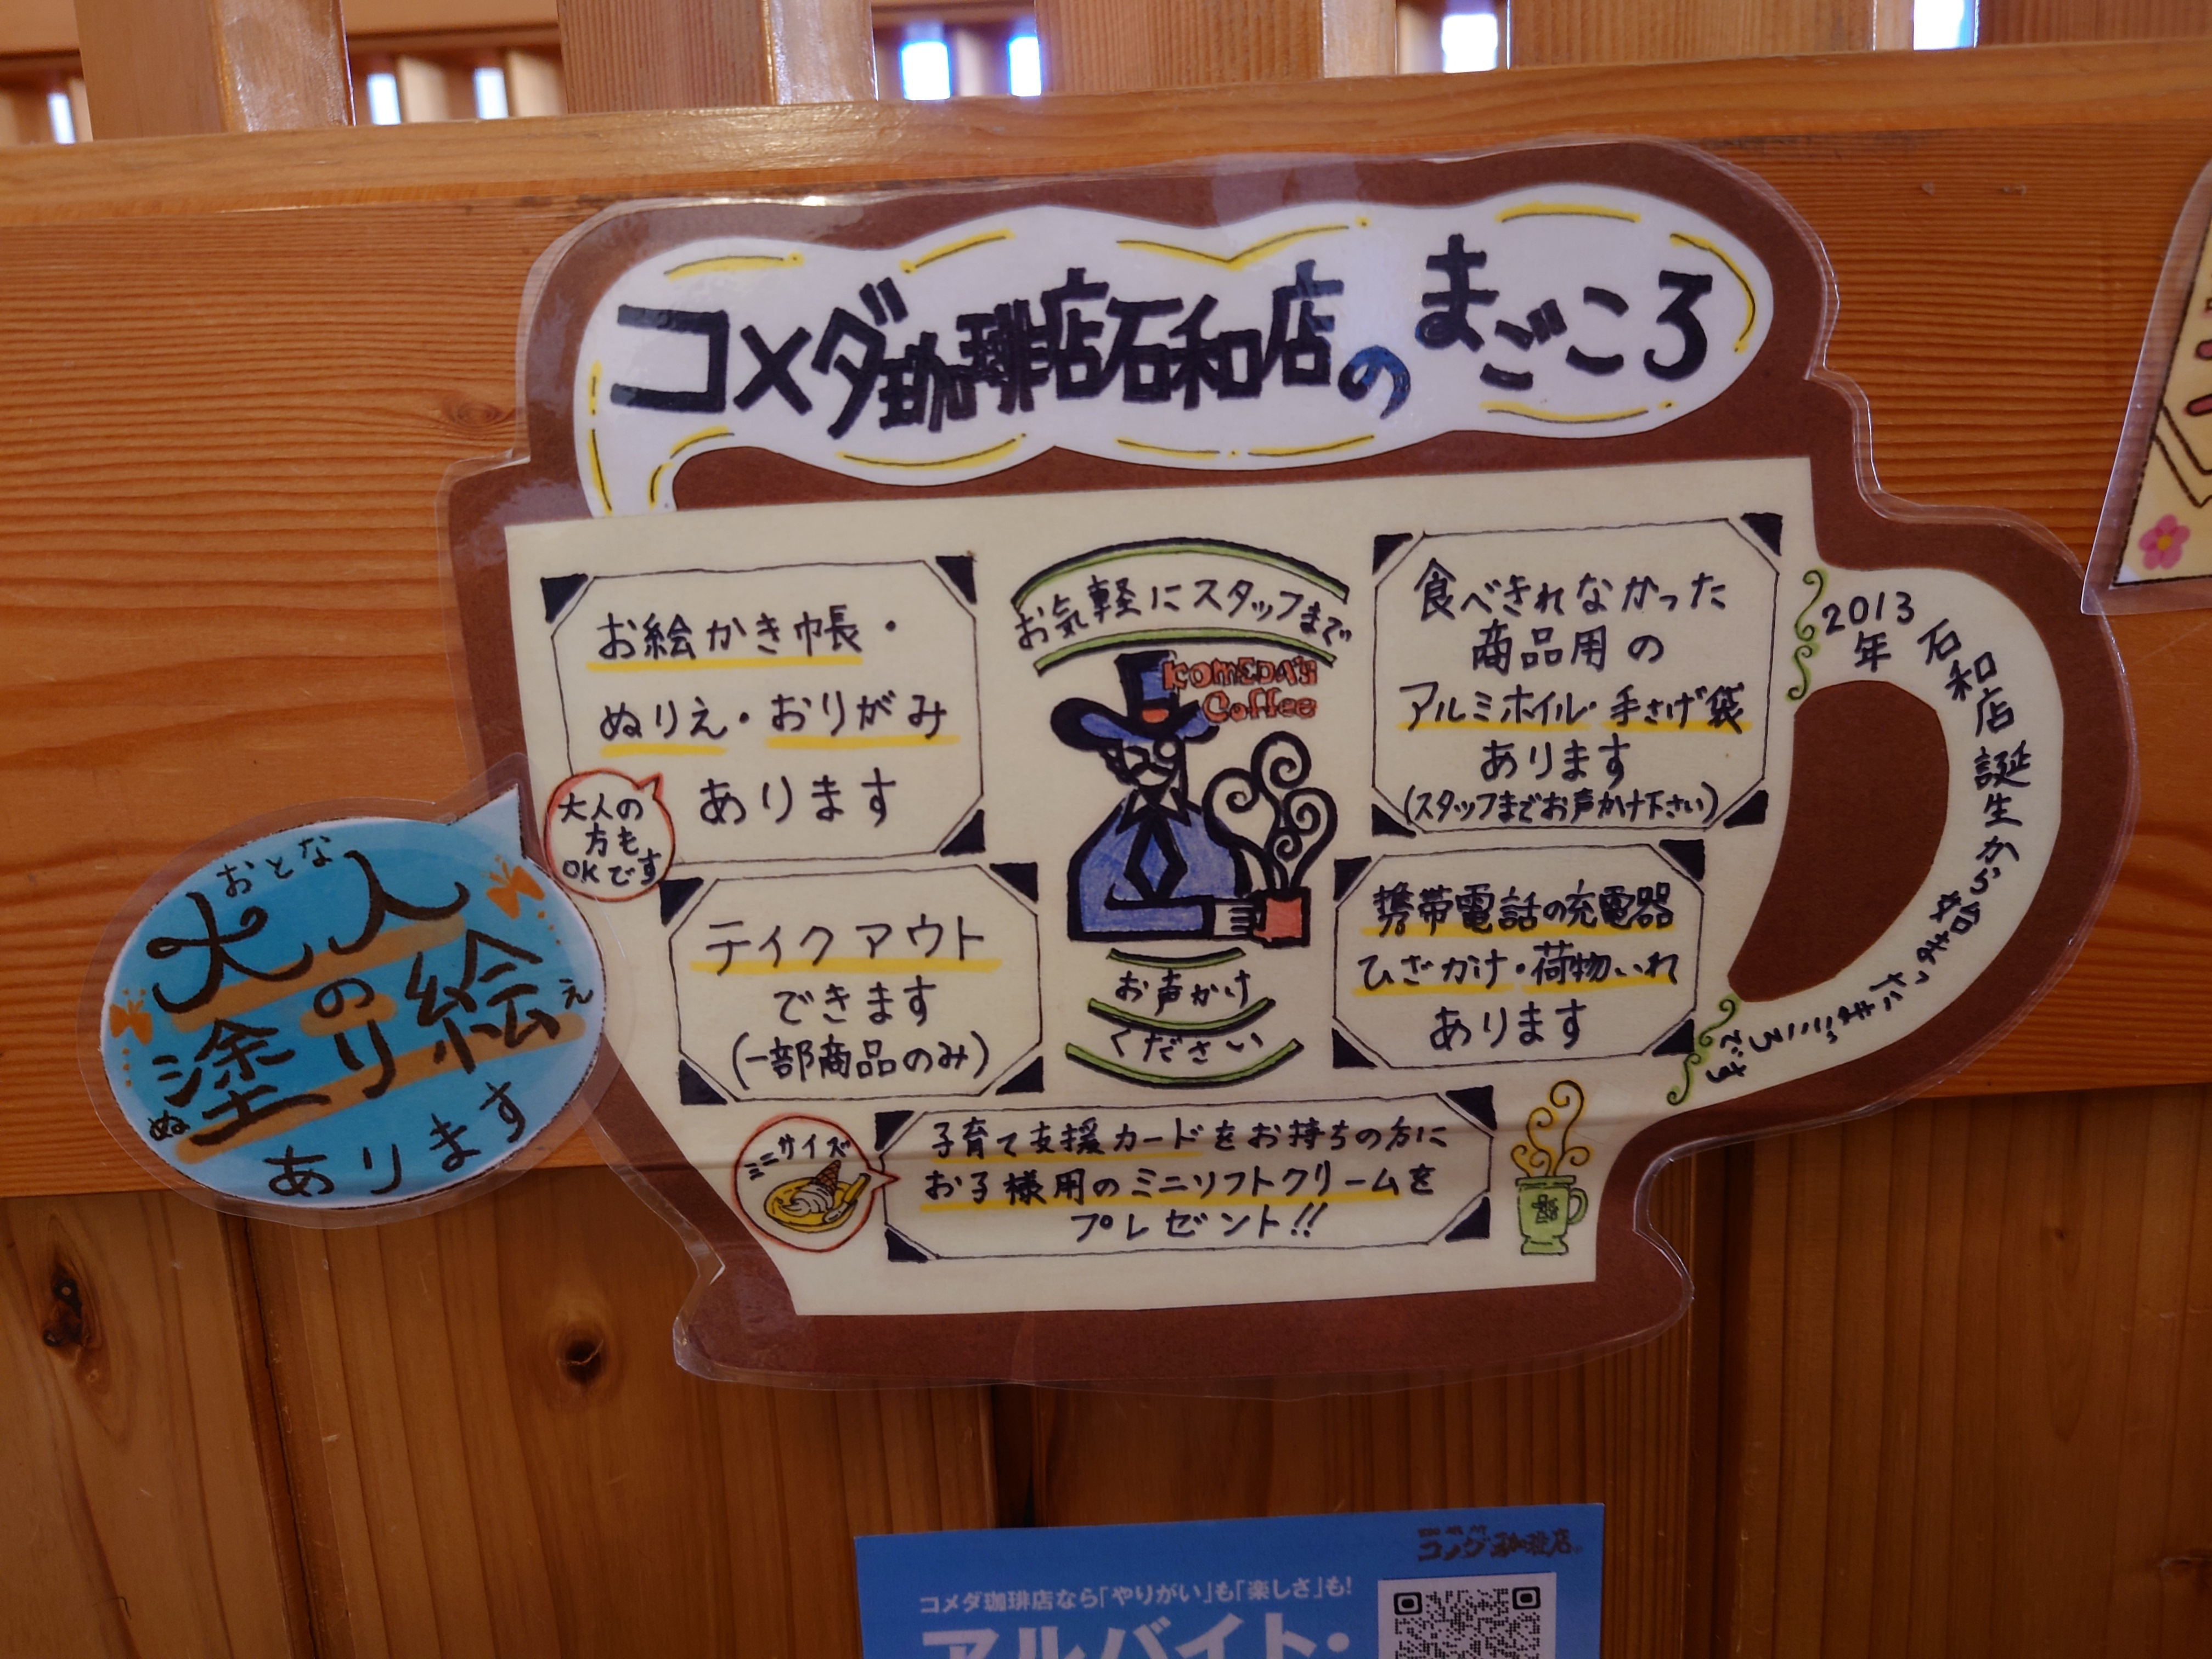 コメダ珈琲店石和店のまごころ
お絵かき帳・
ぬりえ・おりがみ
あります
大人の
方も
OKです
おとな
大人
の
塗り絵
ぬ
え
あります
テイクアウト
できます
(一部商品のみ)
お気軽にスタッフまで
KOMEDA'S
Coffee
お声かけ
ください
食べきれなかった
商品用の
アルミホイル・手さげ袋
あります
(スタッフまでお声かけ下さい)
携帯電話の充電器
ひざかけ・荷物いれ
あります
ミニサイズ
子育て支援カードをお持ちの方に
お子様用のミニソフトクリームを
プレゼント!!
2013
年
石和店誕生から始まったまごころです
コメダ珈琲店なら「やりがい」も「楽しさ」も!
アルバイト・
コメダ珈琲店